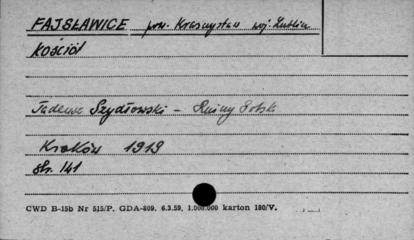 FAJSŁAWICE pow. Krasnystaw woj. Lublin
KOŚCIÓŁ
Tadeusz Szydłowski - Ruiny Polski
Kraków 1919
str. 141
CWD B-15b Nr 515/P. GDA-809. 6.3.59, 1.000.000 karton 180/V.